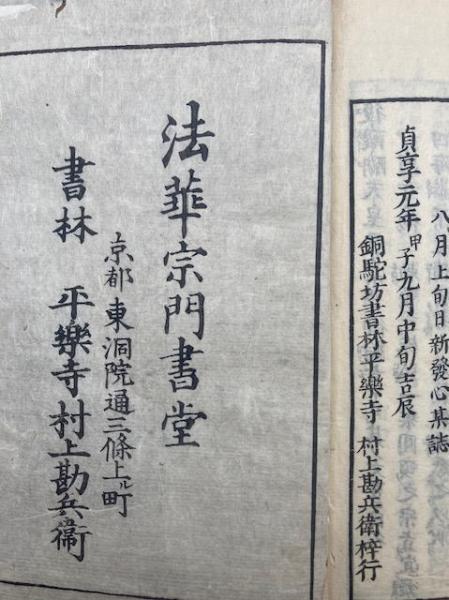 八月上旬日新發心某誌
貞享元年甲子九月中旬吉辰
銅駝坊書林平樂寺 村上勘兵衛梓行
法華宗門書堂
京都 東洞院通三條上ル町
書林 平樂寺村上勘兵衞